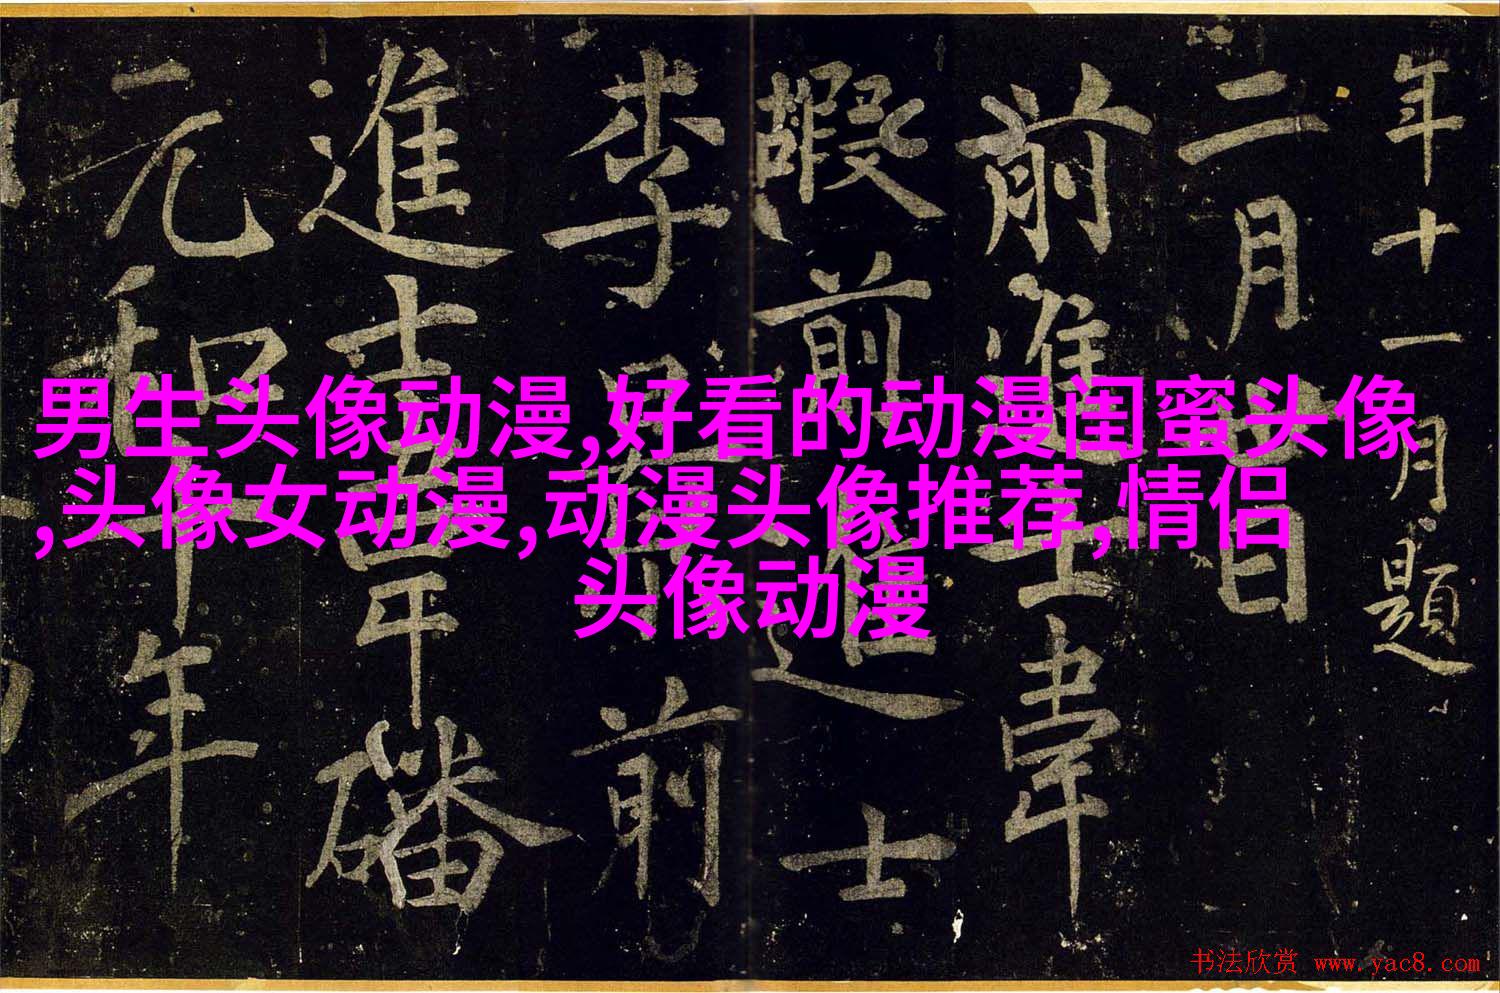 年十一月題
二月日
前進士韋
前進士
李前
進士磻
元和十年
男生头像动漫,好看的动漫闺蜜头像
,头像女动漫,动漫头像推荐,情侣
头像动漫
书法欣赏 www.yac8.com